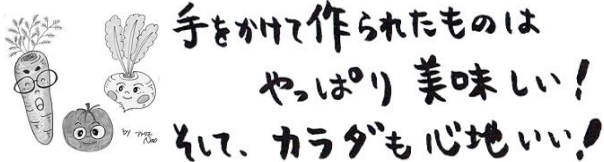 手をかけて作られたものは
やっぱり美味しい！
そして、カラダも心地いい！
by